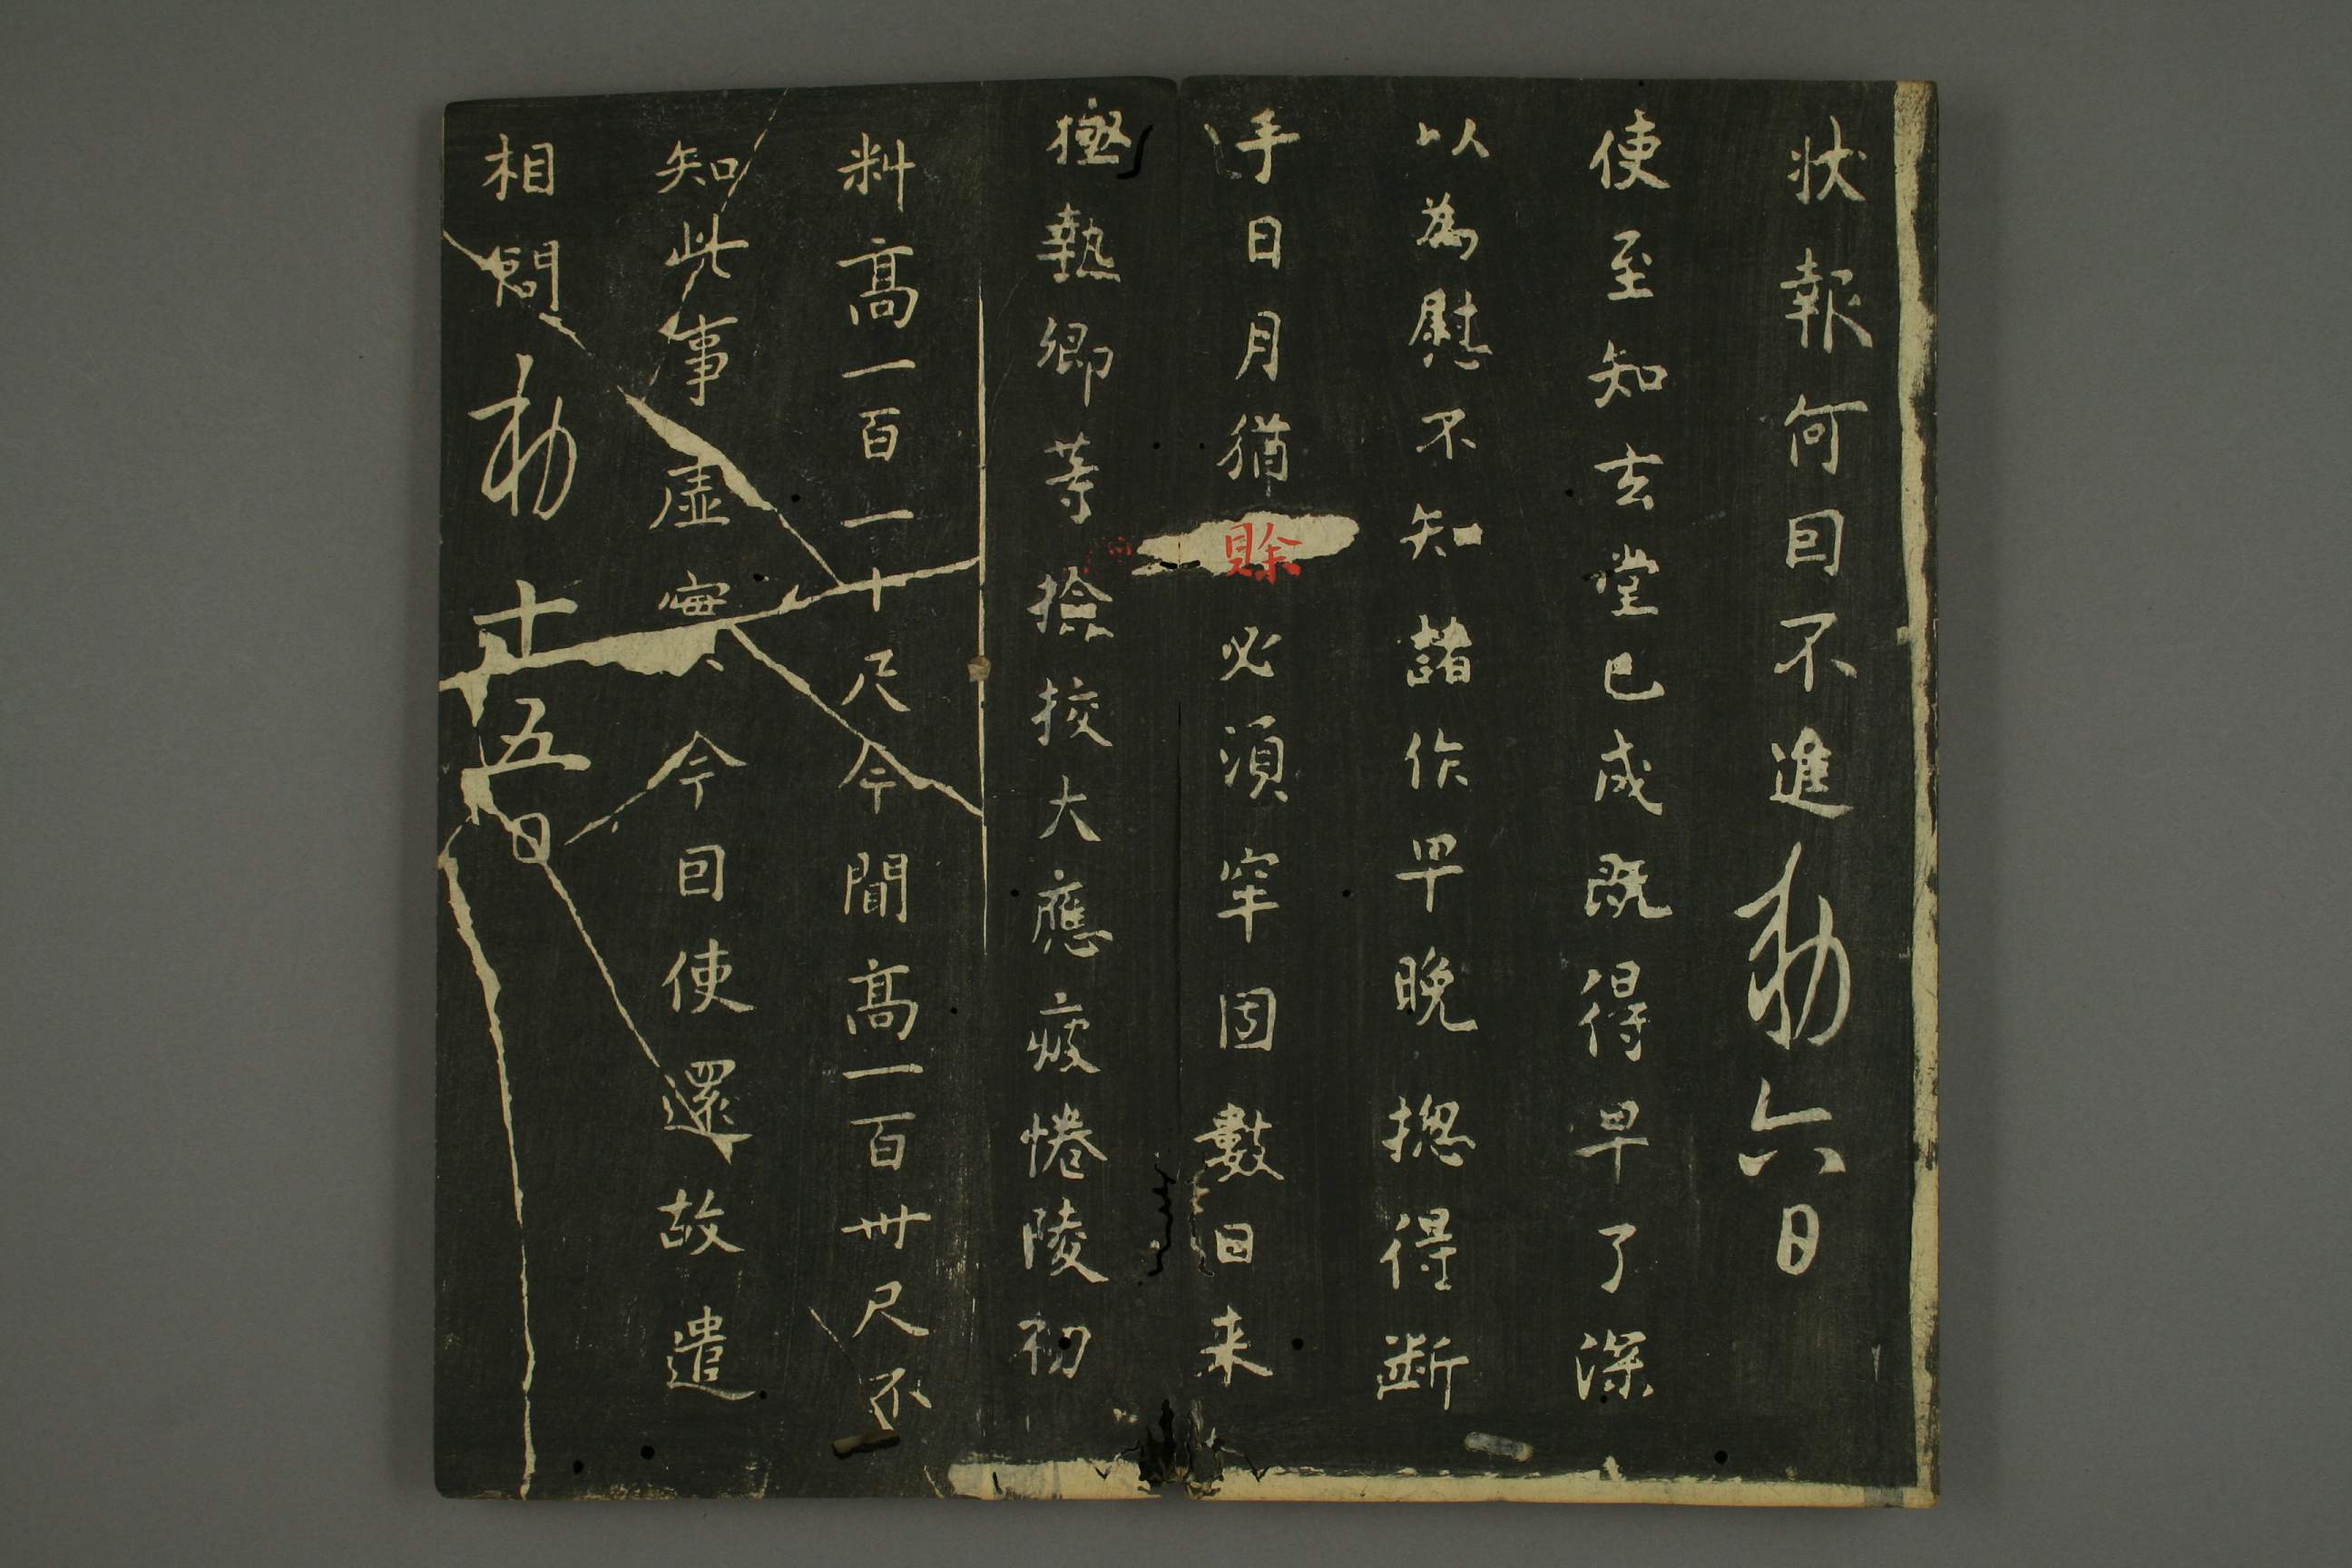 状報何囙不進勅六日
使至知玄堂已成既得早了深
以為慰不知諸作早晚揔得断
手日月猶賖必湏窂固數日来
極熱卿等撿挍大應疲惓陵初
料髙一百一十尺今聞髙一百卅尺不
知此事虚實今囙使還故遣
相問勅十五日